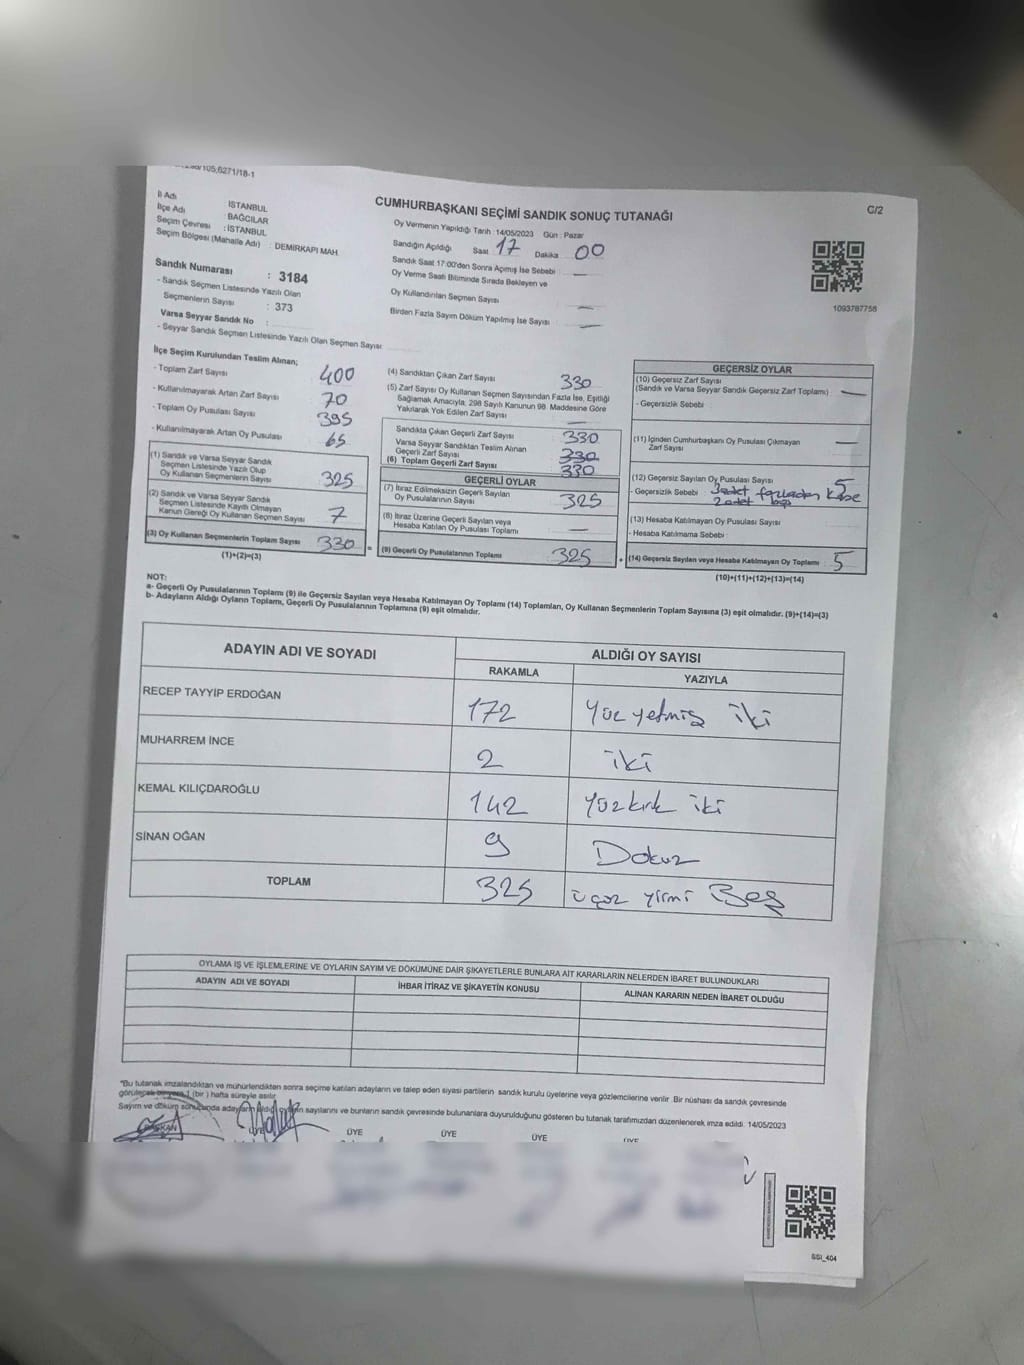 105,6271/18-1
İl Adı : İSTANBUL
İlçe Adı : BAĞCILAR
Seçim Çevresi : İSTANBUL
Seçim Bölgesi (Mahalle Adı) : DEMİRKAPI MAH.
Sandık Numarası : 3184
- Sandık Seçmen Listesinde Yazılı Olan
Seçmenlerin Sayısı : 373
Varsa Seyyar Sandık No :
- Seyyar Sandık Seçmen Listesinde Yazılı Olan Seçmen Sayısı
CUMHURBAŞKANI SEÇİMİ SANDIK SONUÇ TUTANAĞI
C/2
Oy Vermenin Yapıldığı Tarih :14/05/2023 Gün : Pazar
Sandığın Açıldığı Saat 17 Dakika 00
Sandık Saat 17:00'den Sonra Açılmış İse Sebebi :
Oy Verme Saati Bitiminde Sırada Bekleyen ve
Oy Kullandırılan Seçmen Sayısı
Birden Fazla Sayım Döküm Yapılmış İse Sayısı
1093787758
İlçe Seçim Kurulundan Teslim Alınan;
- Toplam Zarf Sayısı 400
- Kullanılmayarak Artan Zarf Sayısı 70
- Toplam Oy Pusulası Sayısı 395
- Kullanılmayarak Artan Oy Pusulası 65
(1) Sandık ve Varsa Seyyar Sandık
Seçmen Listesinde Yazılı Olup
Oy Kullanan Seçmenlerin Sayısı 325
(2) Sandık ve Varsa Seyyar Sandık
Seçmen Listesinde Kayıtlı Olmayan
Kanun Gereği Oy Kullanan Seçmen Sayısı 7
(3) Oy Kullanan Seçmenlerin Toplam Sayısı 330 =
(1)+(2)=(3)
(4) Sandıktan Çıkan Zarf Sayısı 330
(5) Zarf Sayısı Oy Kullanan Seçmen Sayısından Fazla İse, Eşitliği
Sağlamak Amacıyla; 298 Sayılı Kanunun 98. Maddesine Göre
Yakılarak Yok Edilen Zarf Sayısı
Sandıkta Çıkan Geçerli Zarf Sayısı 330
Varsa Seyyar Sandıktan Teslim Alınan
Geçerli Zarf Sayısı 330
(6) Toplam Geçerli Zarf Sayısı 330
GEÇERLİ OYLAR
(7) İtiraz Edilmeksizin Geçerli Sayılan
Oy Pusulalarının Sayısı 325
(8) İtiraz Üzerine Geçerli Sayılan veya
Hesaba Katılan Oy Pusulası Toplamı
(9) Geçerli Oy Pusulalarının Toplamı 325 +
GEÇERSİZ OYLAR
(10) Geçersiz Zarf Sayısı
(Sandık ve Varsa Seyyar Sandık Geçersiz Zarf Toplamı)
- Geçersizlik Sebebi :
(11) İçinden Cumhurbaşkanı Oy Pusulası Çıkmayan
Zarf Sayısı
(12) Geçersiz Sayılan Oy Pusulası Sayısı 5
- Geçersizlik Sebebi 3 adet fazladan kaşe
2 adet boş
(13) Hesaba Katılmayan Oy Pusulası Sayısı
- Hesaba Katılmama Sebebi :
(14) Geçersiz Sayılan veya Hesaba Katılmayan Oy Toplamı 5
(10)+(11)+(12)+(13)=(14)
NOT:
a- Geçerli Oy Pusulalarının Toplamı (9) ile Geçersiz Sayılan veya Hesaba Katılmayan Oy Toplamı (14) Toplamları, Oy Kullanan Seçmenlerin Toplam Sayısına (3) eşit olmalıdır. (9)+(14)=(3)
b- Adayların Aldığı Oyların Toplamı, Geçerli Oy Pusulalarının Toplamına (9) eşit olmalıdır.
ADAYIN ADI VE SOYADI ALDIĞI OY SAYISI
RAKAMLA YAZIYLA
RECEP TAYYİP ERDOĞAN 172 Yüz yetmiş iki
MUHARREM İNCE 2 iki
KEMAL KILIÇDAROĞLU 142 Yüzkırk iki
SİNAN OĞAN 9 Dokuz
TOPLAM 325 üçyüz yirmi Beş
OYLAMA İŞ VE İŞLEMLERİNE VE OYLARIN SAYIM VE DÖKÜMÜNE DAİR ŞİKAYETLERLE BUNLARA AİT KARARLARIN NELERDEN İBARET BULUNDUKLARI
ADAYIN ADI VE SOYADI İHBAR İTİRAZ VE ŞİKAYETİN KONUSU ALINAN KARARIN NEDEN İBARET OLDUĞU
"Bu tutanak imzalandıktan ve mühürlendikten sonra seçime katılan adayların ve talep eden siyasi partilerin sandık kurulu üyelerine veya gözlemcilerine verilir. Bir nüshası da sandık çevresinde
görülecek bir yere 1 (bir ) hafta süreyle asılır.
Sayım ve döküm sonucunda adayların aldığı oyların sayılarını ve bunların sandık çevresinde bulunanlara duyurulduğunu gösteren bu tutanak tarafımızdan düzenlenerek imza edildi. 14/05/2023
BAŞKAN ÜYE ÜYE ÜYE ÜYE ÜYE
SSI_404